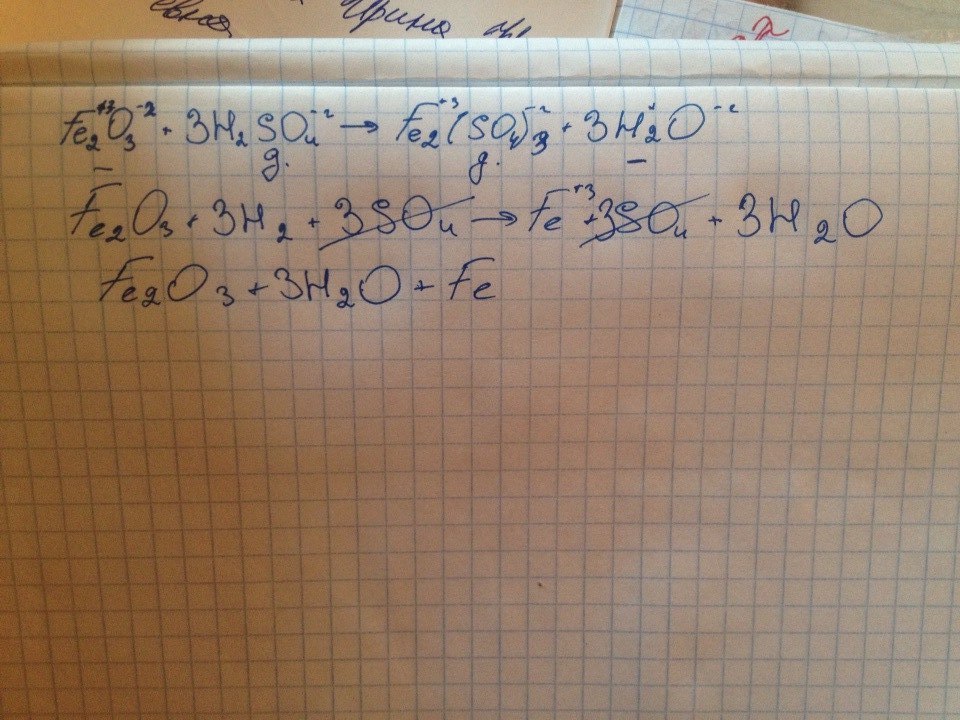 евна Ирина
Fe₂⁺³O₃⁻² + 3H₂SO₄⁻² → Fe₂⁺³(SO₄)₃⁻² + 3H₂⁺O⁻²
– д. д. –
Fe₂O₃ + 3H₂ + 3SO₄ → Fe⁺³ + 3SO₄ + 3H₂O
Fe₂O₃ + 3H₂O + Fe